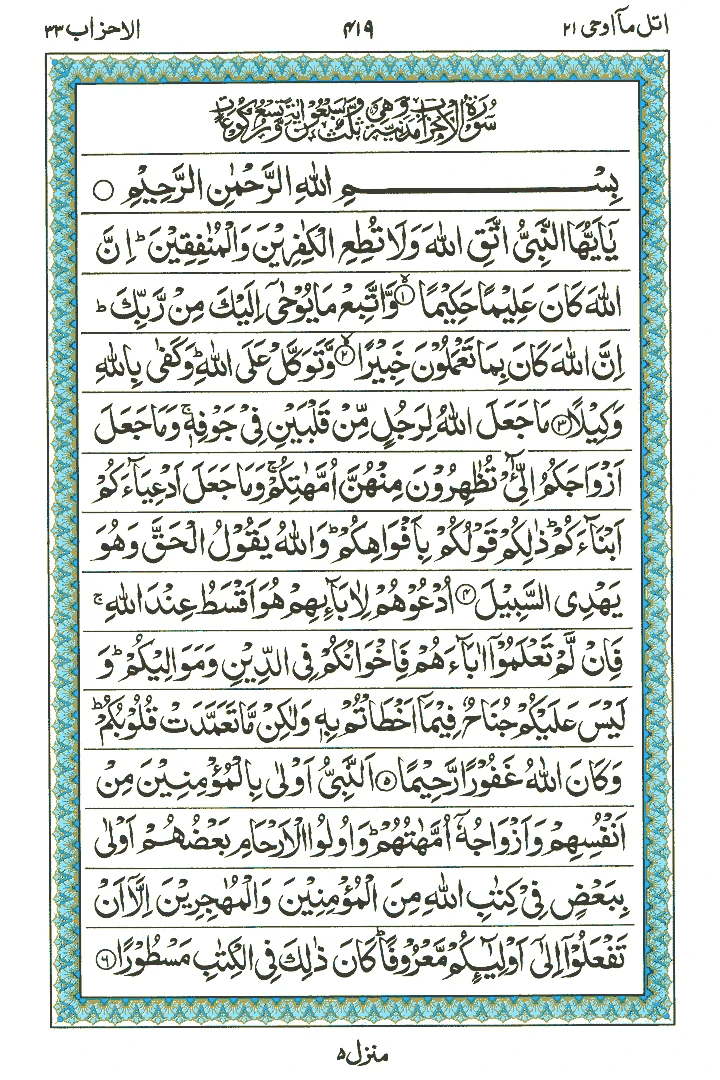 اتل ماۤ اوحی ٢١ ٤١٩ الاحزاب ٣٣
سُوْرَةُ الْاَحْزَابِ مَدَنِيَّةٌ وَّهِيَ ثَلٰثٌ وَّسَبْعُوْنَ اٰيَةً وَّتِسْعُ رُكُوْعَاتٍ
بِسْمِ اللّٰهِ الرَّحْمٰنِ الرَّحِيْمِ ○
يٰۤاَيُّهَا النَّبِيُّ اتَّقِ اللّٰهَ وَلَا تُطِعِ الْكٰفِرِيْنَ وَالْمُنٰفِقِيْنَ ؕ اِنَّ
اللّٰهَ كَانَ عَلِيْمًا حَكِيْمًا ۙ﴿١﴾ وَّاتَّبِعْ مَا يُوْحٰۤى اِلَيْكَ مِنْ رَّبِّكَ ؕ
اِنَّ اللّٰهَ كَانَ بِمَا تَعْمَلُوْنَ خَبِيْرًا ۙ﴿٢﴾ وَّتَوَكَّلْ عَلَى اللّٰهِ ؕ وَكَفٰى بِاللّٰهِ
وَكِيْلًا ﴿٣﴾ مَا جَعَلَ اللّٰهُ لِرَجُلٍ مِّنْ قَلْبَيْنِ فِيْ جَوْفِهٖ ۚ وَمَا جَعَلَ
اَزْوَاجَكُمُ الّٰٓـِٔيْ تُظٰهِرُوْنَ مِنْهُنَّ اُمَّهٰتِكُمْ ۚ وَمَا جَعَلَ اَدْعِيَآءَكُمْ
اَبْنَآءَكُمْ ؕ ذٰلِكُمْ قَوْلُكُمْ بِاَفْوَاهِكُمْ ؕ وَاللّٰهُ يَقُوْلُ الْحَقَّ وَهُوَ
يَهْدِى السَّبِيْلَ ﴿٤﴾ اُدْعُوْهُمْ لِاٰبَآئِهِمْ هُوَ اَقْسَطُ عِنْدَ اللّٰهِ ۚ
فَاِنْ لَّمْ تَعْلَمُوْۤا اٰبَآءَهُمْ فَاِخْوَانُكُمْ فِى الدِّيْنِ وَمَوَالِيْكُمْ ؕ وَ
لَيْسَ عَلَيْكُمْ جُنَاحٌ فِيْمَاۤ اَخْطَاْتُمْ بِهٖ وَلٰكِنْ مَّا تَعَمَّدَتْ قُلُوْبُكُمْ ؕ
وَكَانَ اللّٰهُ غَفُوْرًا رَّحِيْمًا ﴿٥﴾ اَلنَّبِيُّ اَوْلٰى بِالْمُؤْمِنِيْنَ مِنْ
اَنْفُسِهِمْ وَاَزْوَاجُهٗۤ اُمَّهٰتُهُمْ ؕ وَاُولُوا الْاَرْحَامِ بَعْضُهُمْ اَوْلٰى
بِبَعْضٍ فِيْ كِتٰبِ اللّٰهِ مِنَ الْمُؤْمِنِيْنَ وَالْمُهٰجِرِيْنَ اِلَّاۤ اَنْ
تَفْعَلُوْۤا اِلٰۤى اَوْلِيٰٓئِكُمْ مَّعْرُوْفًا ؕ كَانَ ذٰلِكَ فِى الْكِتٰبِ مَسْطُوْرًا ﴿٦﴾
منزل ٥